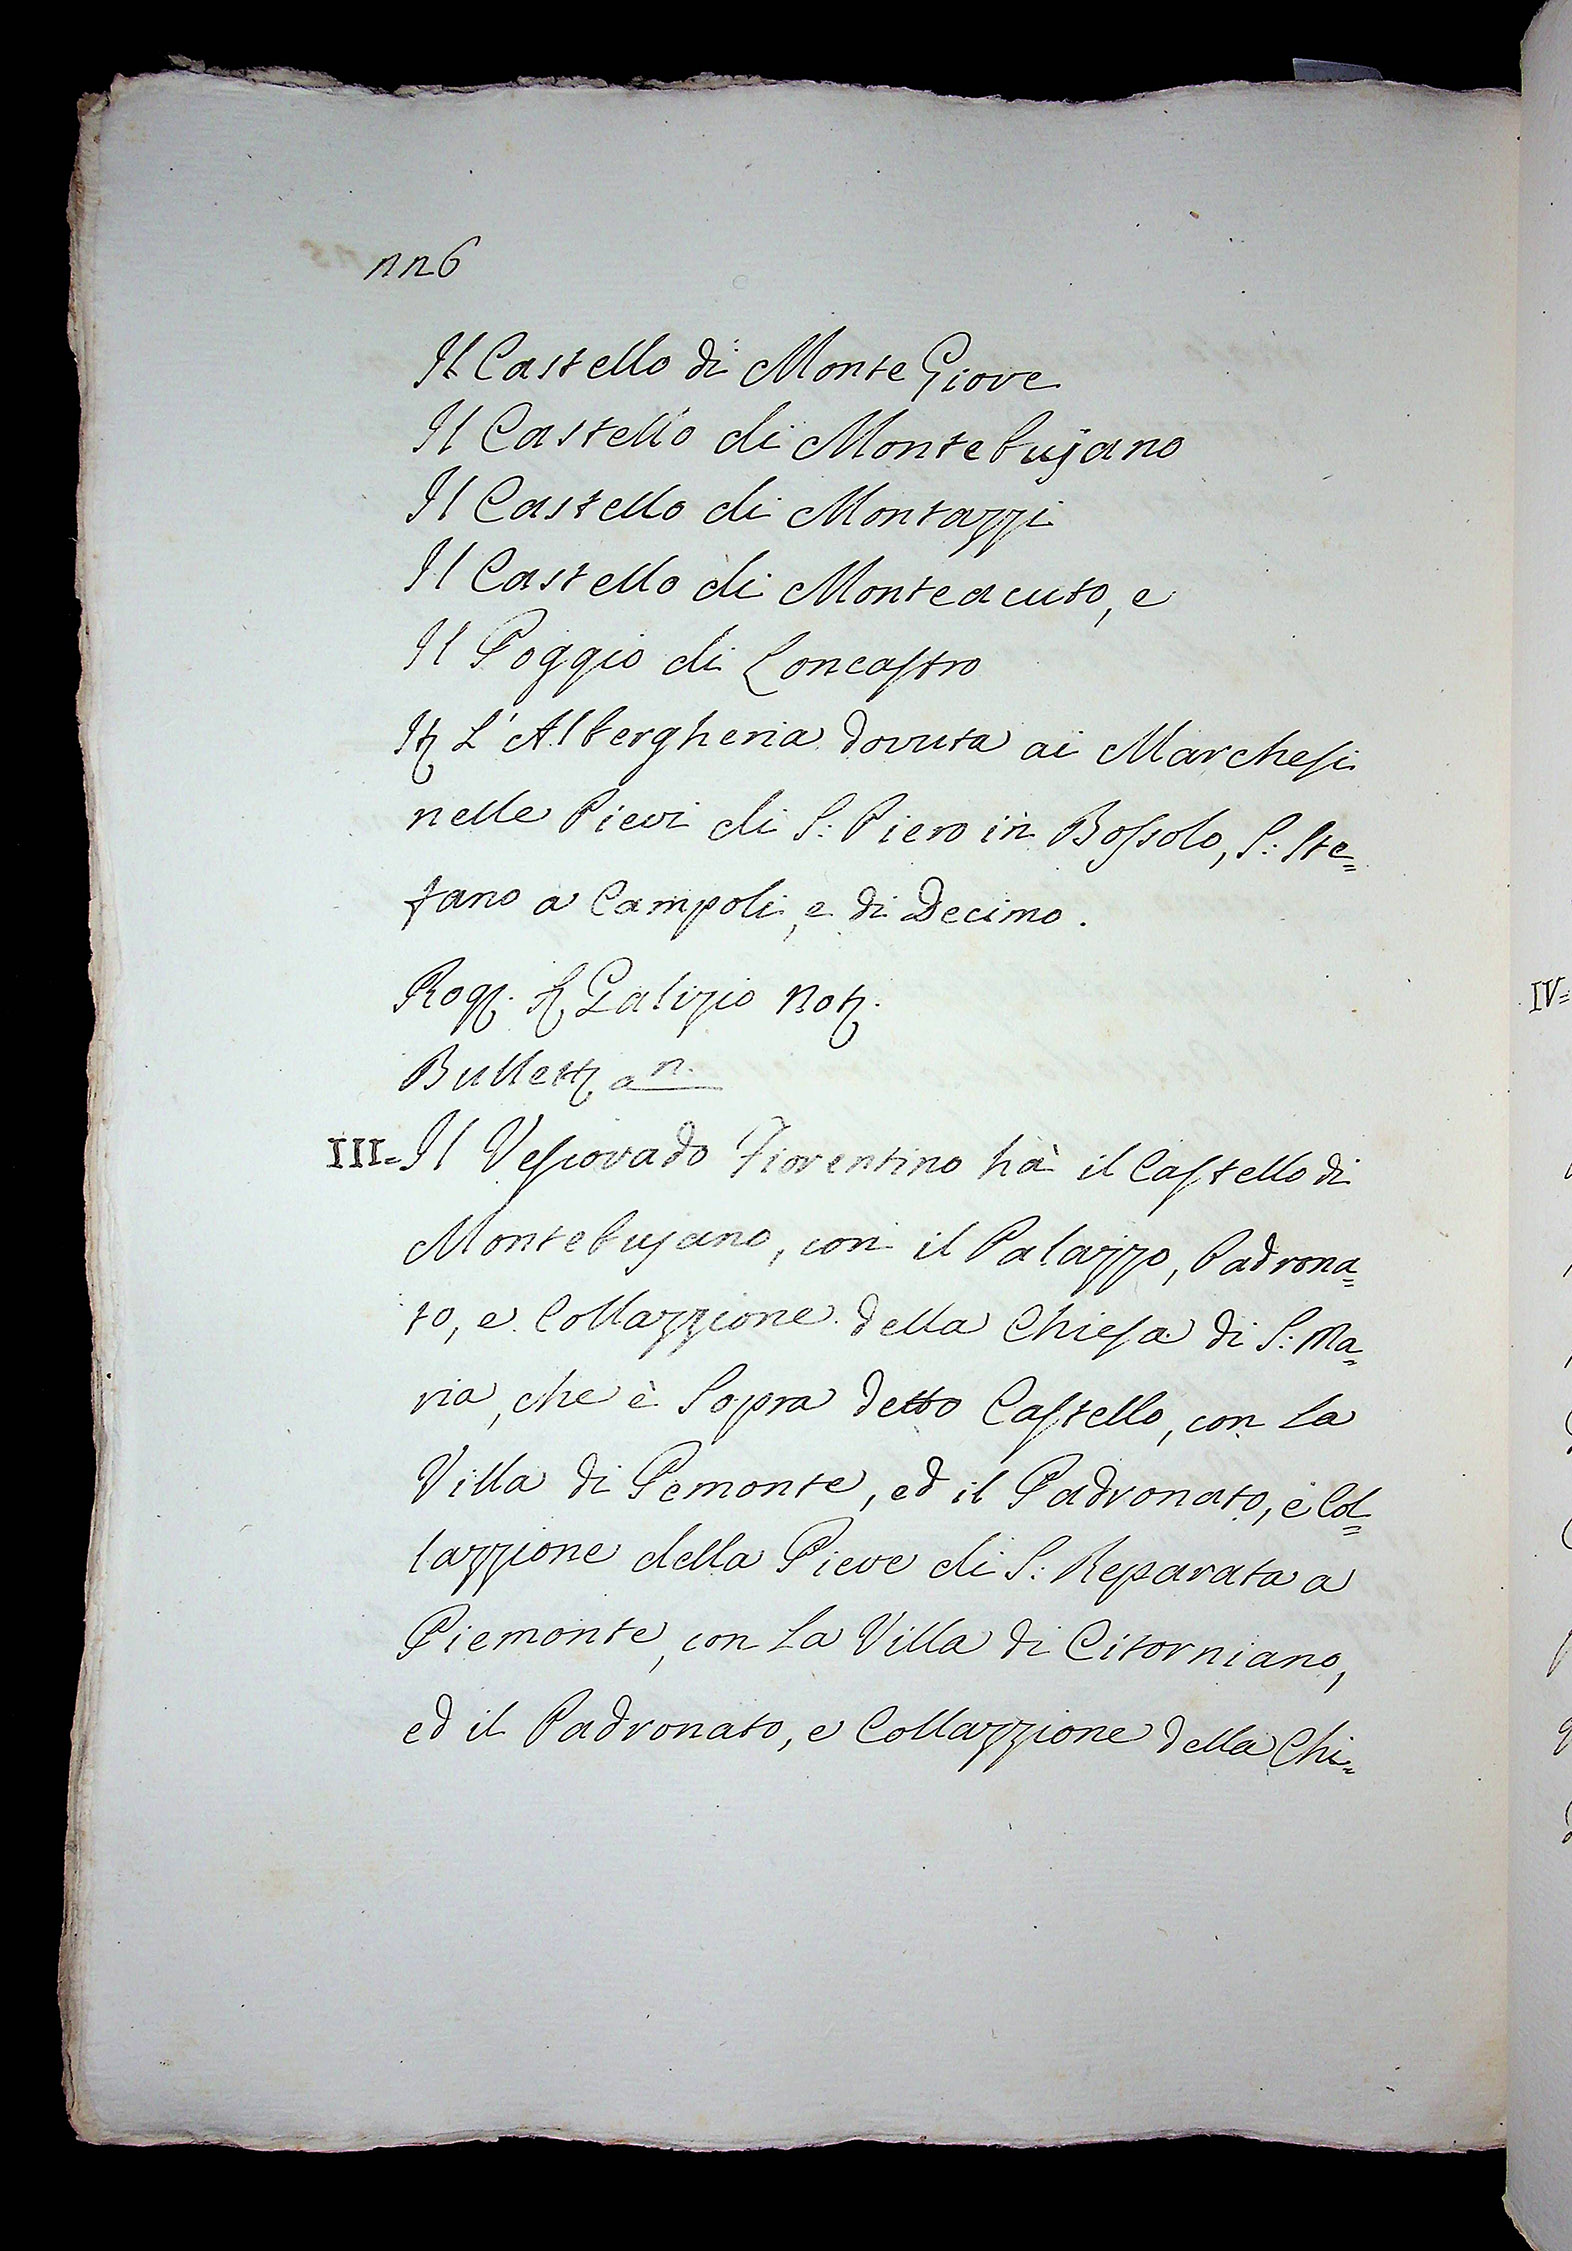 116
Il Castello di Monte Giove
Il Castello di Montebujano
Il Castello di Montazzi
Il Castello di Monteacuto, e
Il Poggio di Loncastro
It L'Albergheria dovuta ai Marchesi
nelle Pievi di S: Piero in Bossolo, S: Ste=
fano a Campoli, e di Decimo.
Rog. Galizio Not.
Bullett a n.
III= Il Vescovado Fiorentino hà il Castello di
Montebujano, con il Palazzo, Padrona=
to, e Collazzione della Chiesa di S: Ma=
ria, che è Sopra detto Castello, con la
Villa di Pemonte, ed il Padronato, e Col=
lazzione della Pieve di S: Reparata a
Piemonte, con la Villa di Citorniano,
ed il Padronato, e Collazzione della Chi=
IV=